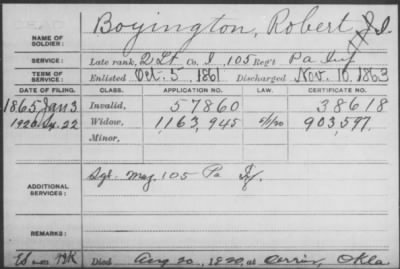 NAME OF SOLDIER: Boyington, Robert J.
SERVICE: Late rank, 2 Lt. Co. I, 105 Reg't Pa Inf
TERM OF SERVICE: Enlisted Oct. 5, 1861 Discharged Nov. 10, 1863
DATE OF FILING. CLASS. APPLICATION NO. LAW. CERTIFICATE NO.
1865 Jan 3 Invalid, 57860 38618
1920 22 Widow, 1,163,945 903,597
Minor,
ADDITIONAL SERVICES: Sgt. Maj. 105 Pa Inf.
REMARKS:
Died Aug 20, 1920, at Okla.